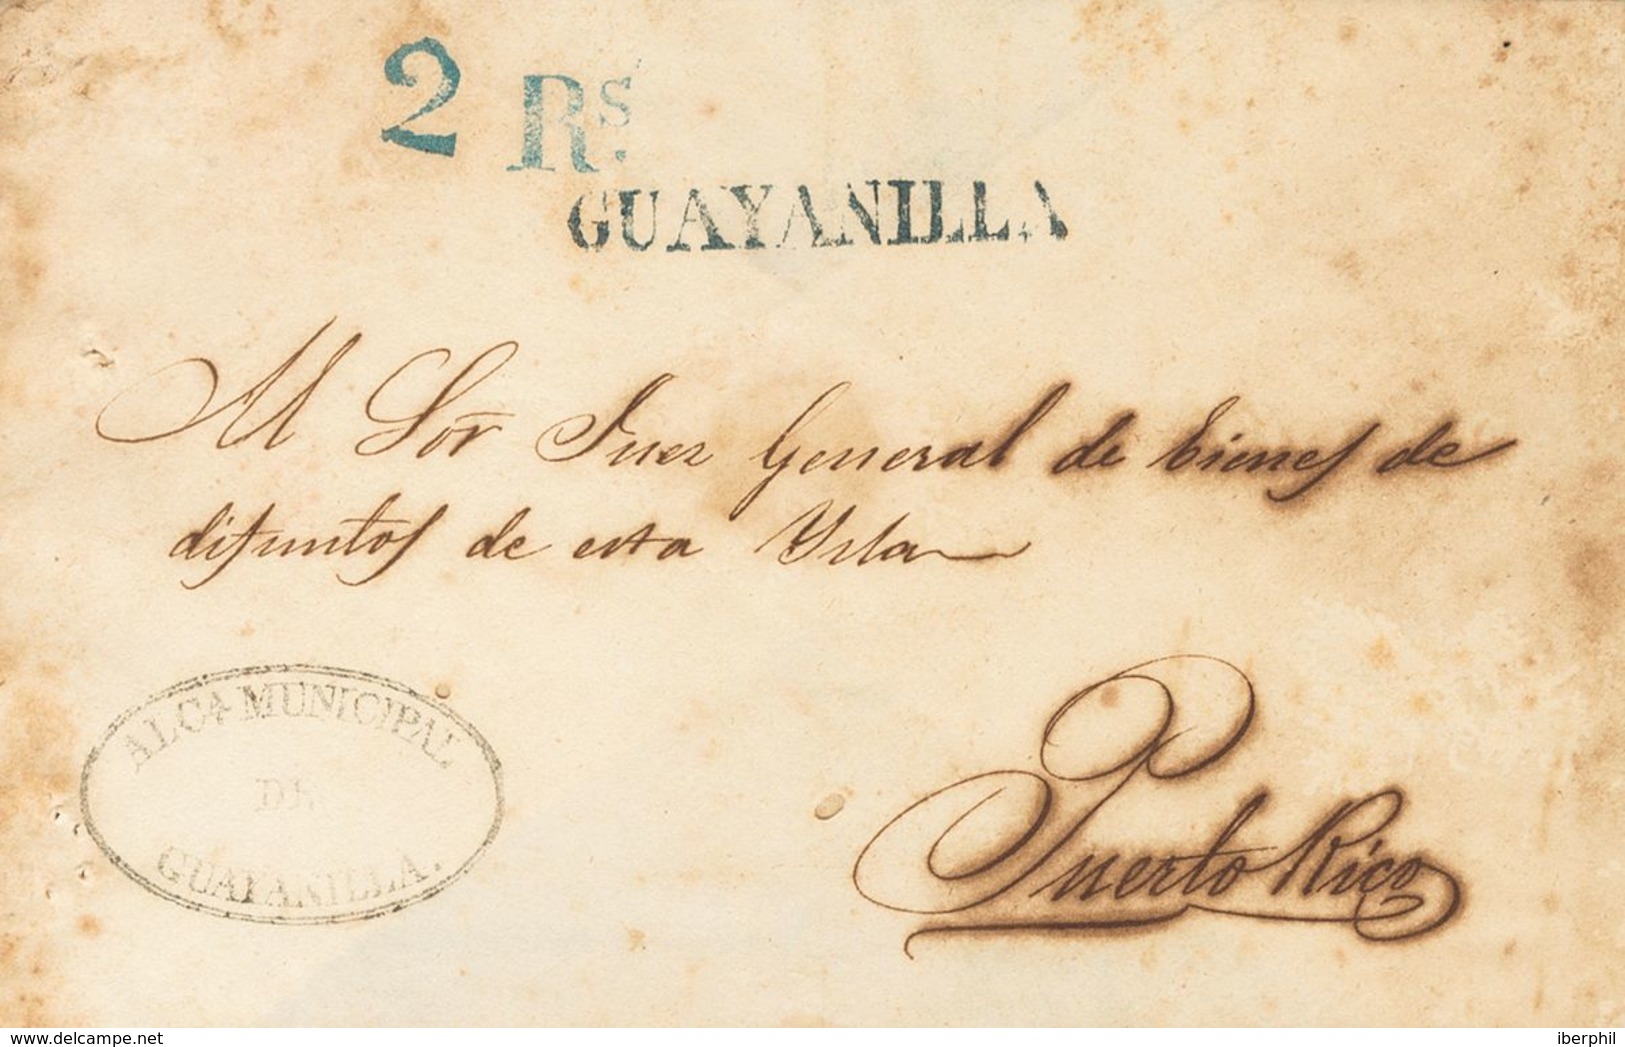 2 Rs.
GUAYANILLA
Al Sor Juez General de bienes de
difuntos de esta Ysla
ALCA MUNICIPAL
DE
GUAYANILLA.
Puerto Rico
www.delcampe.net
iberphil